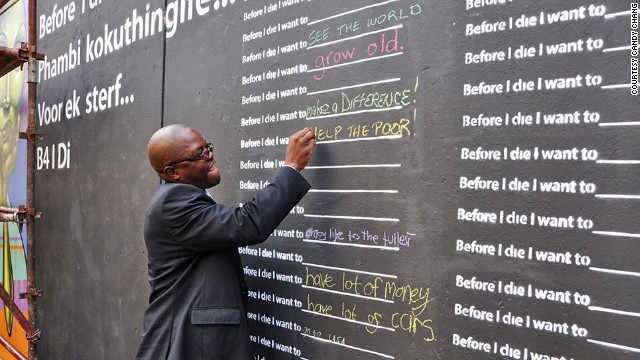 Before I di
Phambi kokuthingife...
Voor ek sterf...
B4 I Di
Before I die I want to
Before I die I want to SEE THE WORLD
Before I die I want to grow old.
Before I die I want to
Before I die I want to make a DIFFERENCE!
Before I die I want to HELP THE POOR!
Before I die I want to
Before I die I want to
Before I die I
to
I want to enjoy life to the fullest
Before I die I want to
Before I die I want to have lot of money
Before I die I want to have lots of cars.
Before I die I want to go to usa
Before I die I want to
Before I die I want to
Before I die I want to
Before I die I want to
Before I die I want to
Before I die I want to
Before I die I want to
Before I die I want to
Before I die I want to
Before I die I want to
Before I die I want to
Before I die I want to
Before I die I want to
COURTESY CANDY CHANG